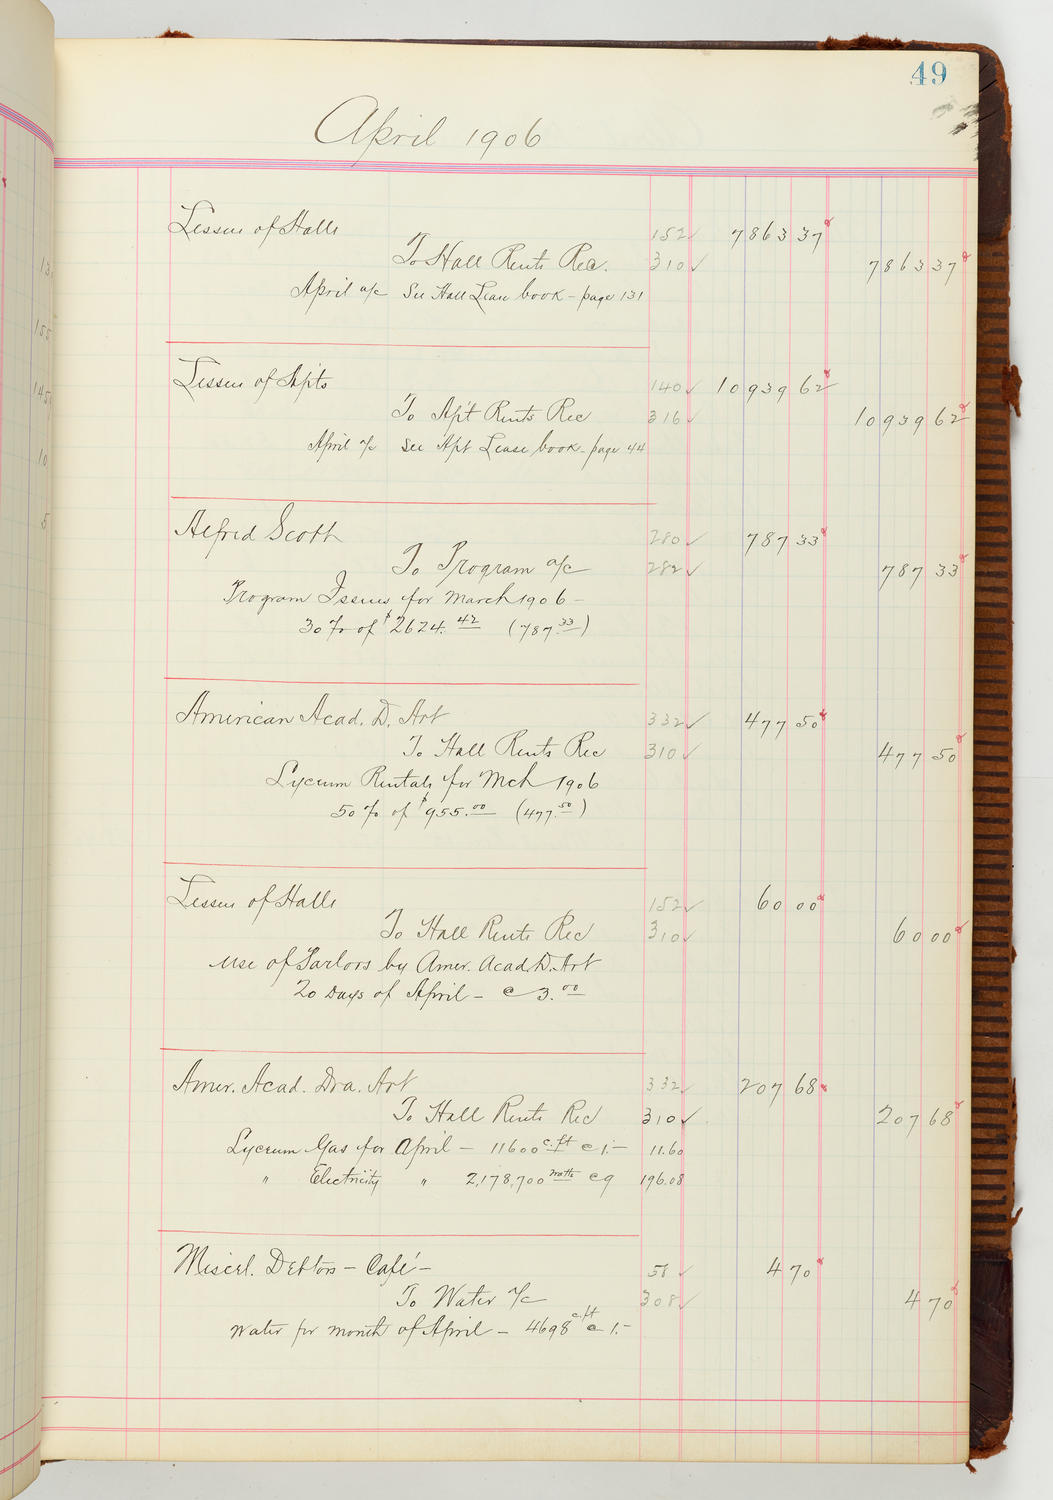 49
April 1906
Lessees of Halls 152 ✓ 7863 37
To Hall Rents Rec. 310 ✓ 7863 37
April a/c See Hall Lease book - page 131
Lessees of Apts 140 ✓ 10939 62
To Apt Rents Rec 316 ✓ 10939 62
April a/c See Apt Lease book - page 44
Alfred Scott 280 ✓ 787 33
To Program a/c 282 ✓ 787 33
Program Issues for March 1906 -
30% of $2624.42 (787.33)
American Acad. D. Art 332 ✓ 477 50
To Hall Rents Rec 310 ✓ 477 50
Lyceum Rentals for Mch 1906
50% of $955.00 (477.50)
Lessees of Halls 152 ✓ 60 00
To Hall Rents Rec 310 ✓ 60 00
Use of Parlors by Amer. Acad. D. Art
20 Days of April - @ 3.00
Amer. Acad. Dra. Art 332 ✓ 207 68
To Hall Rents Rec 310 ✓ 207 68
Lyceum Gas for April - 11600 c.ft @ 1.- 11.60
" Electricity " 2,178,700 watts @ 9 196.08
Miscel. Debtors - Café - 58 ✓ 4 70
To Water a/c 308 ✓ 4 70
Water for month of April - 4698 c.ft @ 1.-